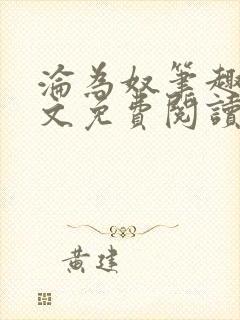 淪為奴筆趣
文免費閱讀
黃建